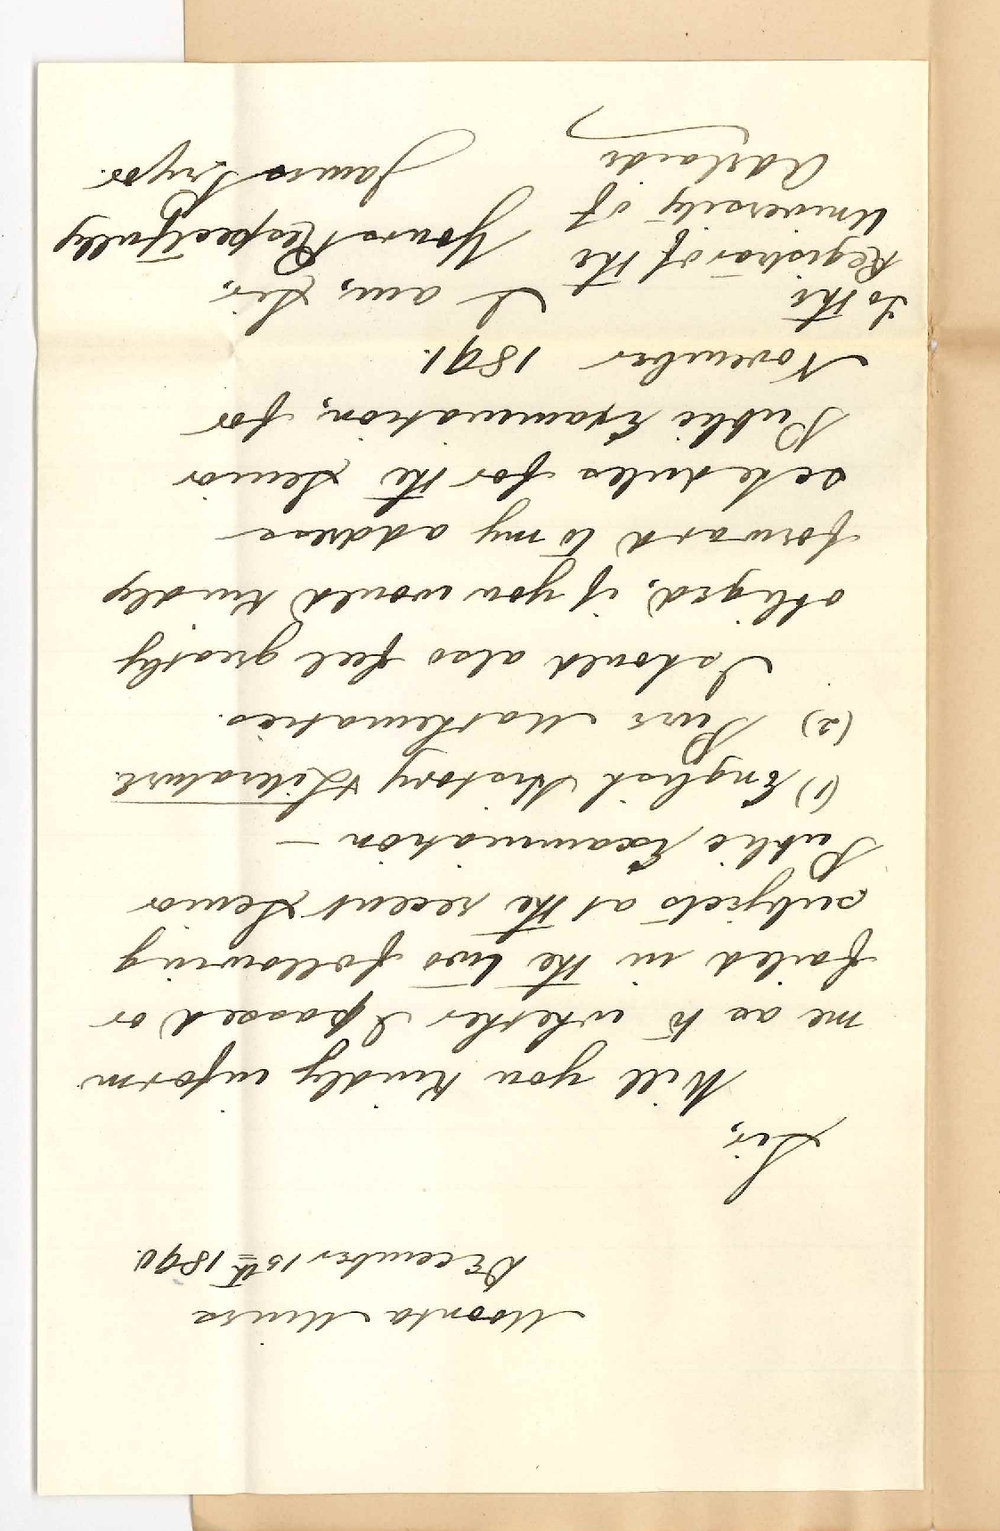 Moonta Mines
December 15th 1890.
Sir,
Will you kindly inform
me as to whether I passed or
failed in the two following
subjects at the recent Senior
Public Examination —
(1) English History & Literature.
(2) Pure Mathematics.
I should also feel greatly
obliged, if you would kindly
forward to my address
schedules for the Senior
Public Examination, for
November 1891.
I am, Sir,
Yours Respectfully
James Pryor.
To the
Registrar of the
University of
Adelaide